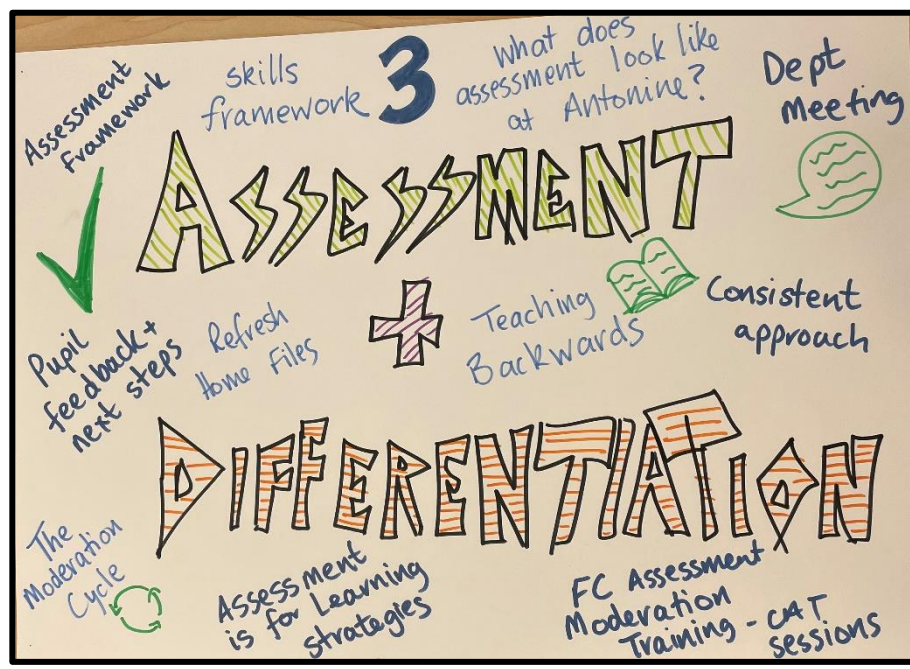 Assessment
Framework
skills
framework
3
what does
assessment look like
at Antonine?
Dept
Meeting
ASSESSMENT
+
Pupil
feedback +
next steps
Refresh
Home Files
Teaching
Backwards
Consistent
approach
DIFFERENTIATION
The
Moderation
Cycle
Assessment
is for Learning
strategies
FC Assessment
Moderation
Training - CAT
sessions